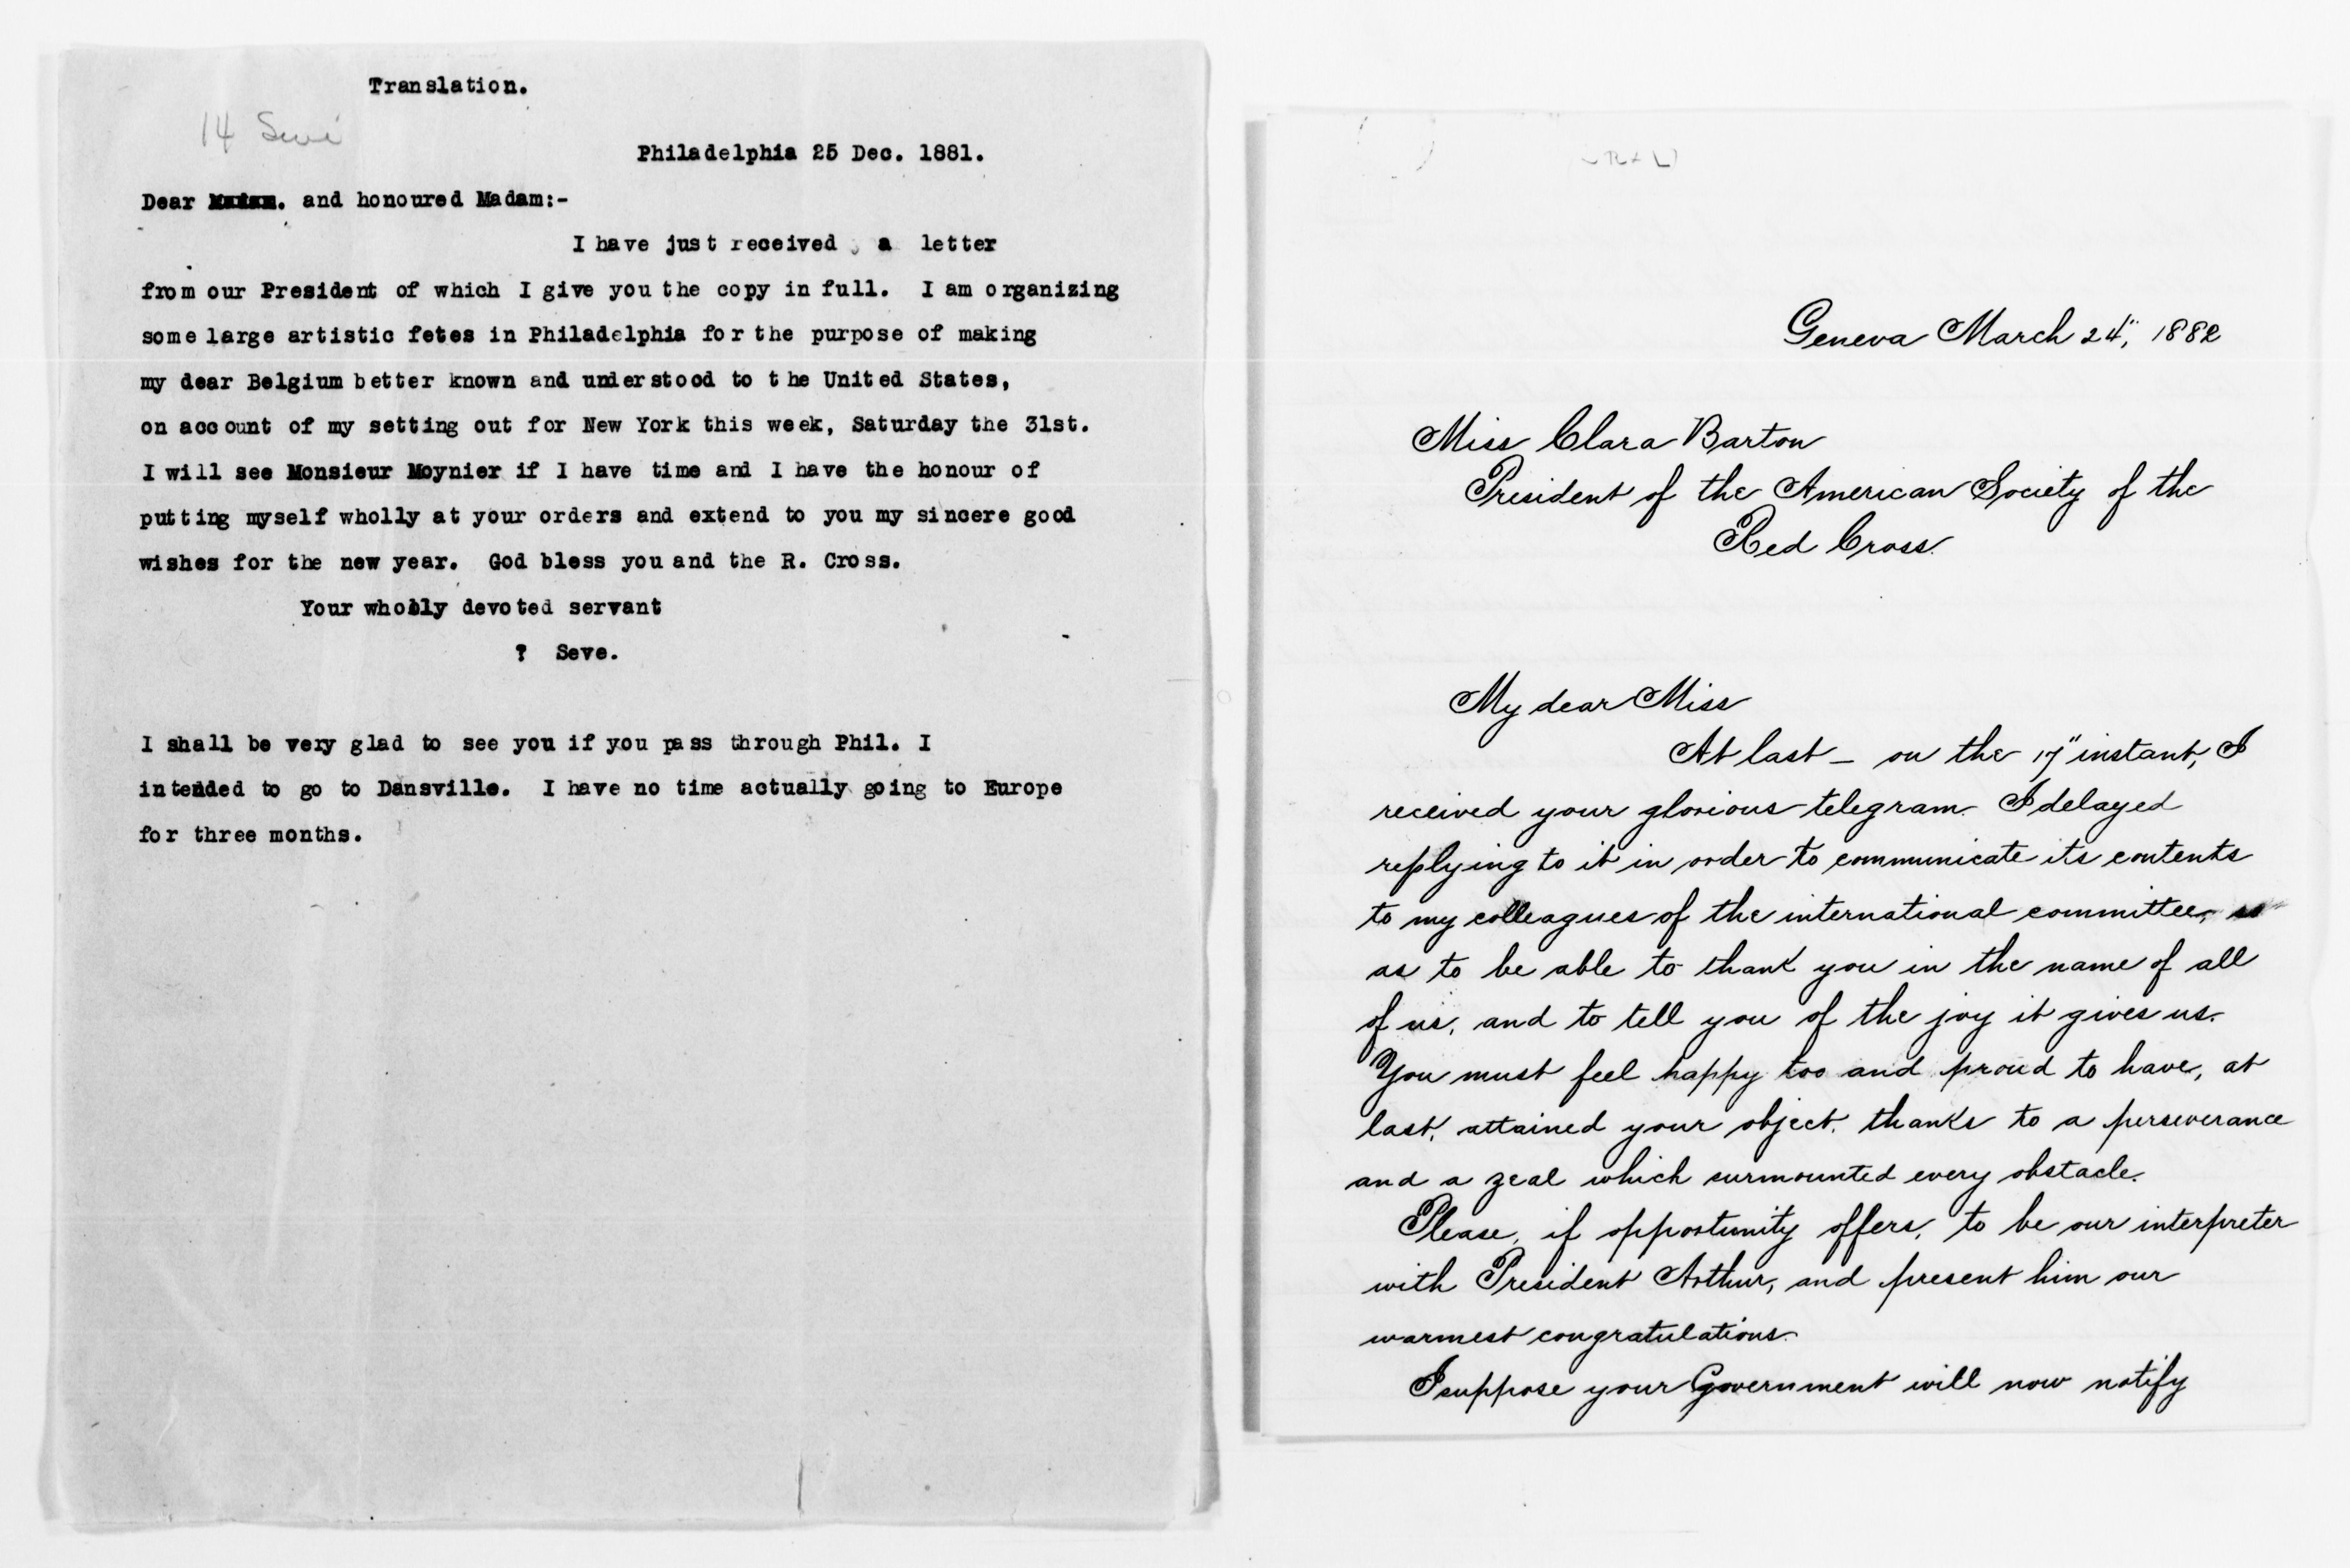 Translation.
14 Sevé
Philadelphia 25 Dec. 1881.
Dear . and honoured Madam:-
I have just received a letter
from our President of which I give you the copy in full. I am organizing
some large artistic fetes in Philadelphia for the purpose of making
my dear Belgium better known and understood to the United States,
on account of my setting out for New York this week, Saturday the 31st.
I will see Monsieur Moynier if I have time and I have the honour of
putting myself wholly at your orders and extend to you my sincere good
wishes for the new year. God bless you and the R. Cross.
Your wholly devoted servant
? Seve.
I shall be very glad to see you if you pass through Phil. I
intended to go to Dansville. I have no time actually going to Europe
for three months.
Geneva March 24", 1882
Miss Clara Barton
President of the American Society of the
Red Cross.
My dear Miss
At last – on the 17" instant, I
received your glorious telegram. I delayed
replying to it in order to communicate its contents
to my colleagues of the international committee, so
as to be able to thank you in the name of all
of us, and to tell you of the joy it gives us.
You must feel happy too and proud to have, at
last, attained your object, thanks to a perseverance
and a zeal which surmounted every obstacle.
Please, if opportunity offers, to be our interpreter
with President Arthur, and present him our
warmest congratulations.
I suppose your Government will now notify